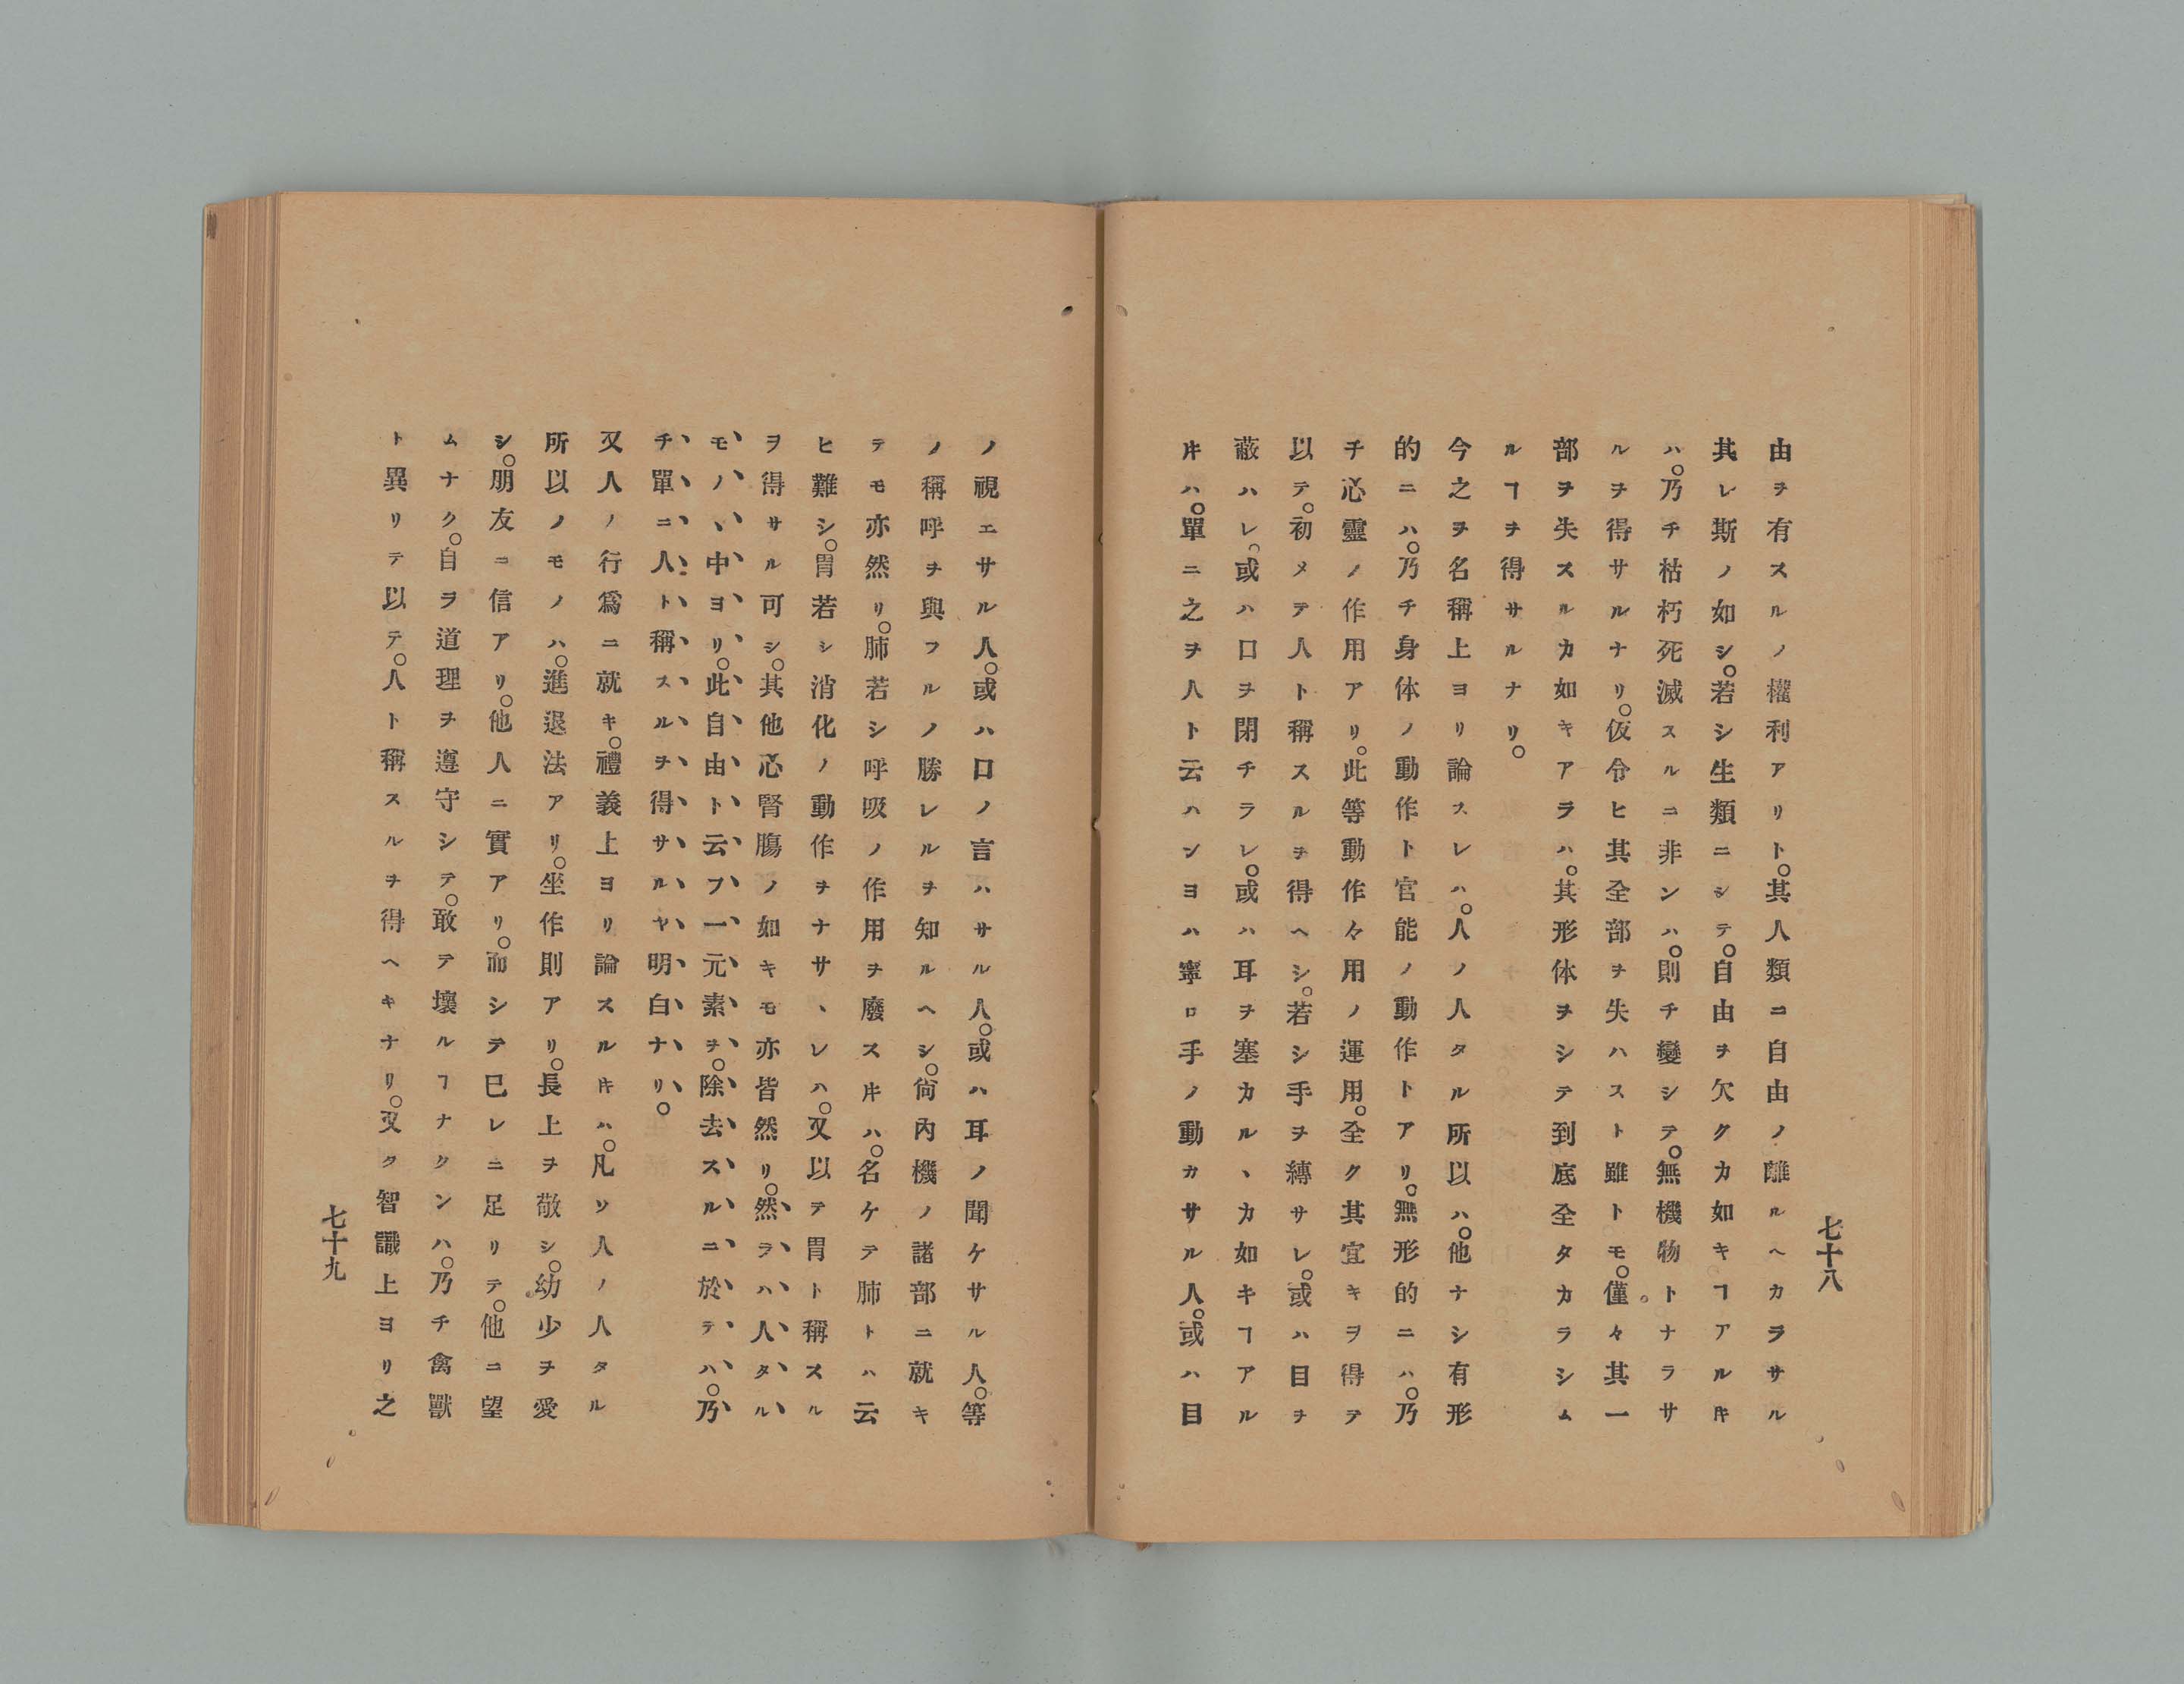 由ヲ有スルノ權利アリト。其人類ニ自由ノ離ルヘカラサル
其レ斯ノ如シ。若シ生類ニシテ。自由ヲ欠クカ如キヿアルキ
ハ。乃チ枯朽死滅スルニ非ンハ。則チ變シテ。無機物トナラサ
ルヲ得サルナリ。仮令ヒ其全部ヲ失ハスト雖トモ。僅々其一
部ヲ失スルカ如キアラハ。其形体ヲシテ到底全タカラシム
ルヿヲ得サルナリ。
今之ヲ名稱上ヨリ論スレハ。人ノ人タル所以ハ。他ナシ有形
的ニハ。乃チ身体ノ動作ト官能ノ動作トアリ。無形的ニハ。乃
チ心靈ノ作用アリ。此等動作々用ノ運用。全ク其宜キヲ得テ
以テ。初メテ人ト稱スルヲ得ヘシ。若シ手ヲ縛サレ。或ハ目ヲ
蔽ハレ。或ハ口ヲ閉チラレ。或ハ耳ヲ塞カルヽカ如キヿアル
𪜈ハ。單ニ之ヲ人ト云ハンヨハ寧ロ手ノ動カサル人。或ハ目
七十八
ノ視エサル人。或ハ口ノ言ハサル人。或ハ耳ノ聞ケサル人。等
ノ稱呼ヲ與フルノ勝レルヲ知ルヘシ。尙內機ノ諸部ニ就キ
テモ亦然リ。肺若シ呼吸ノ作用ヲ廢ス𪜈ハ。名ケテ肺トハ云
ヒ難シ。胃若シ消化ノ動作ヲナサヽレハ。又以テ胃ト稱スル
ヲ得サル可シ。其他心腎膓ノ如キモ亦皆然リ。然ラハ人タル
モノヽ中ヨリ。此自由ト云フ一元素ヲ。除去スルニ於テハ。乃
チ單ニ人ト稱スルヲ得サルヤ明白ナリ。
又人ノ行爲ニ就キ。禮義上ヨリ論スル𪜈ハ。凡ソ人ノ人タル
所以ノモノハ。進退法アリ。坐作則アリ。長上ヲ敬シ。幼少ヲ愛
シ。朋友ニ信アリ。他人ニ實アリ。而シテ已レニ足リテ。他ニ望
ムナク。自ヲ道理ヲ遵守シテ。敢テ壞ルヿナクンハ。乃チ禽獸
ト異リテ以テ。人ト稱スルヲ得ヘキナリ。又タ智識上ヨリ之
七十九